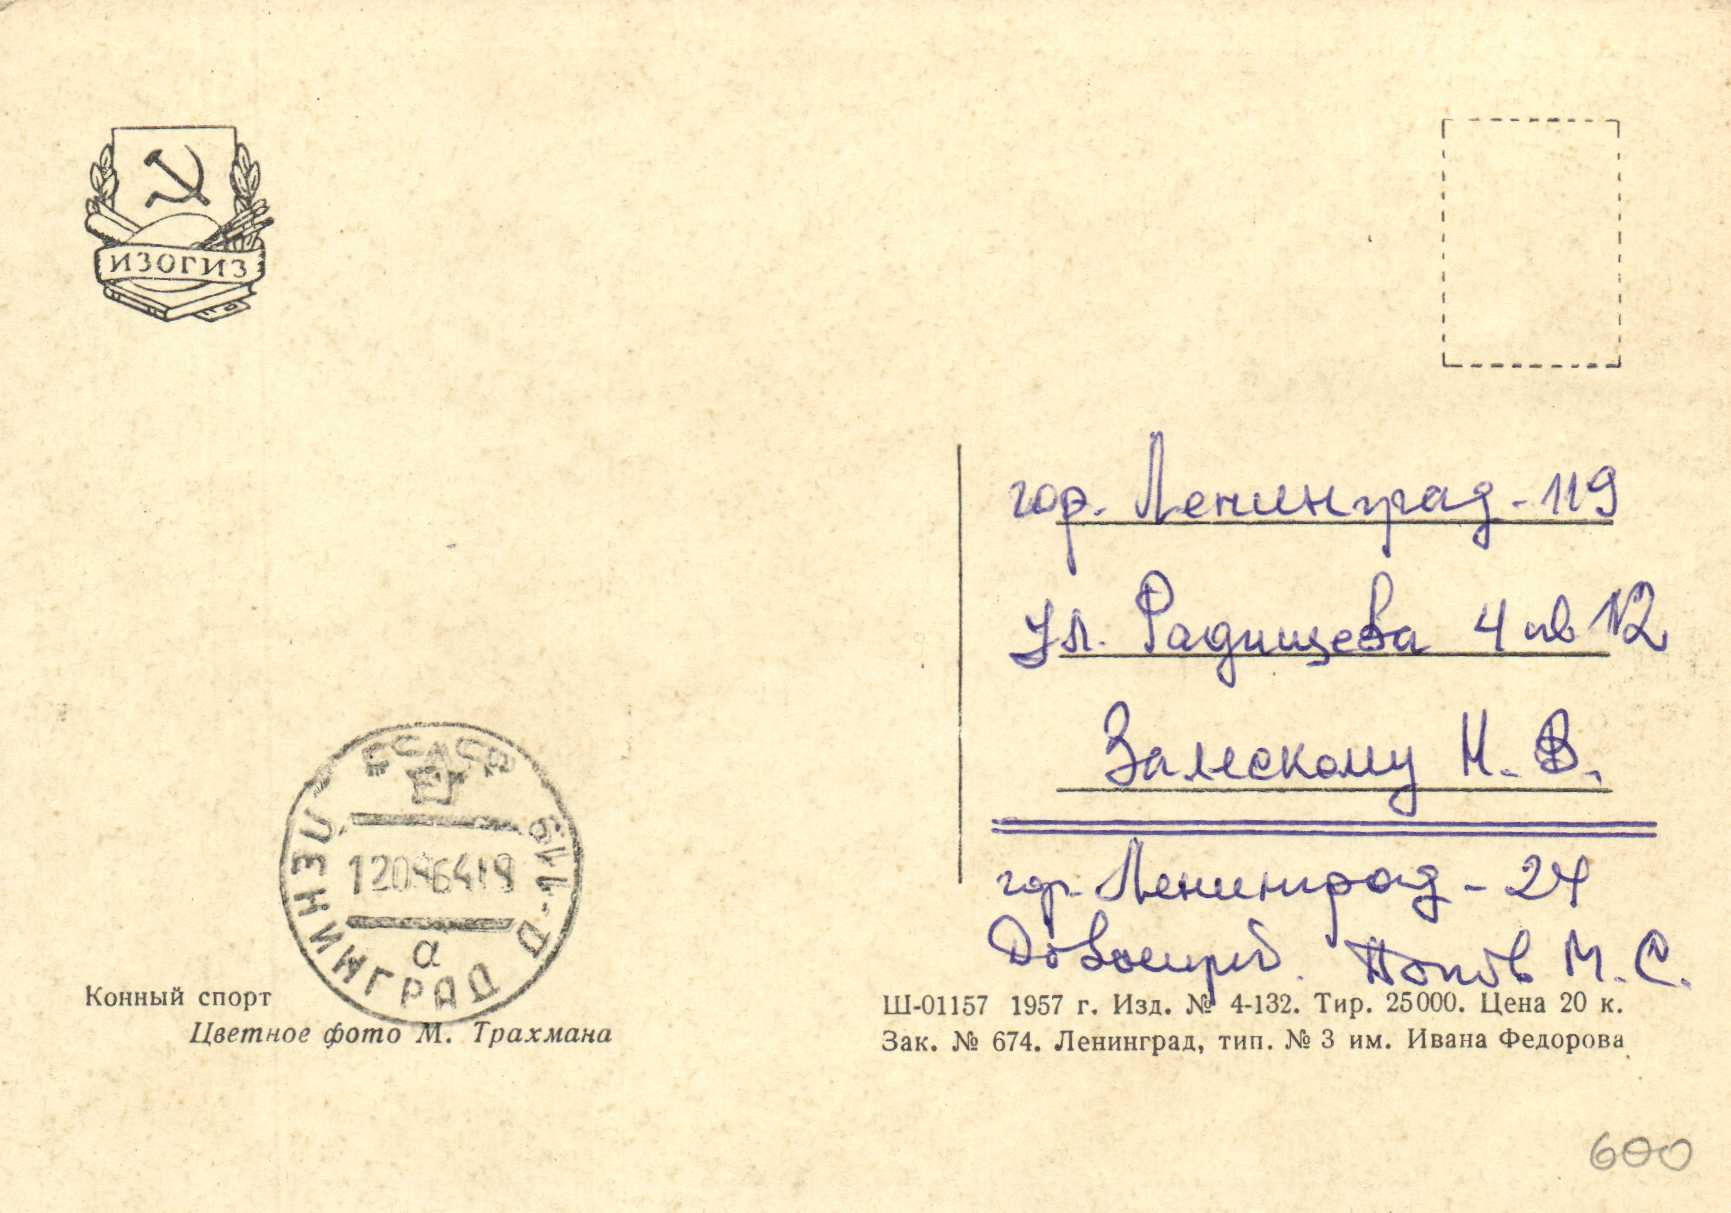 ИЗОГИЗ
гор. Ленинград-119
ул. Радищева 4 кв 12
Залескому Н. В.
гор. Ленинград-24
Попов М. С.
СССР
ЛЕНИНГРАД Д-119
а
Конный спорт
Цветное фото М. Трахмана
Ш-01157 1957 г. Изд. № 4-132. Тир. 25000. Цена 20 к.
Зак. № 674. Ленинград, тип. № 3 им. Ивана Федорова
600